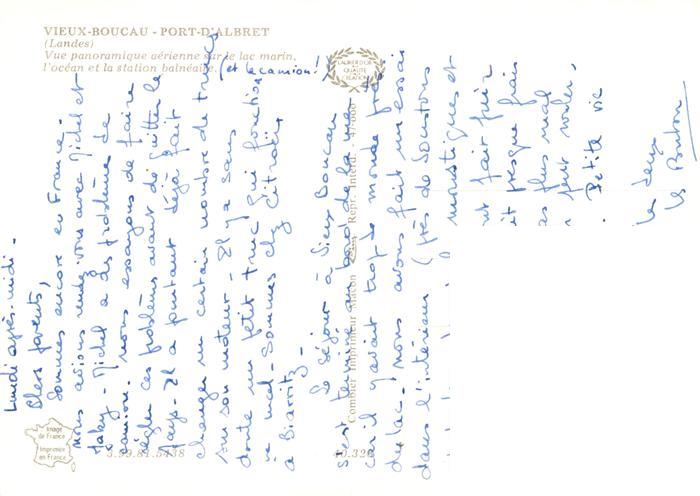 VIEUX-BOUCAU - PORT-D'ALBRET
(Landes)
Vue panoramique aérienne sur le lac marin,
l'océan et la station balnéaire.
LAURIER D'OR
DE LA
QUALITÉ
CRÉATION
Image
de France
Imprimée
en France
3.99.81.5438
40.320
Combier Imprimeur Macon
Repr. Interd. -
Lundi après-midi -
Chers parents,
Sommes encore en France -
nous avions rendez-vous avec Michel et
Jaky - Michel a des problèmes de
camion - nous essayons de faire
régler ces problèmes avant de quitter le
pays - Il a pourtant déjà fait
changer un certain nombre de trucs
sur son moteur - Il y a sans (et le camion!)
doute un petit truc qui fonctionne
mal - Sommes chez Citroën
à Biarritz -
Le séjour à Vieux Boucau
s'est terminé au bord de la mer
car il y avait trop de monde près
du lac. nous avons fait un essai
dans l'intérieur (près de Soustons
moustiques et
fait fuir
presque frais
plus mal
peut rouler,
Petite vie
Les deux